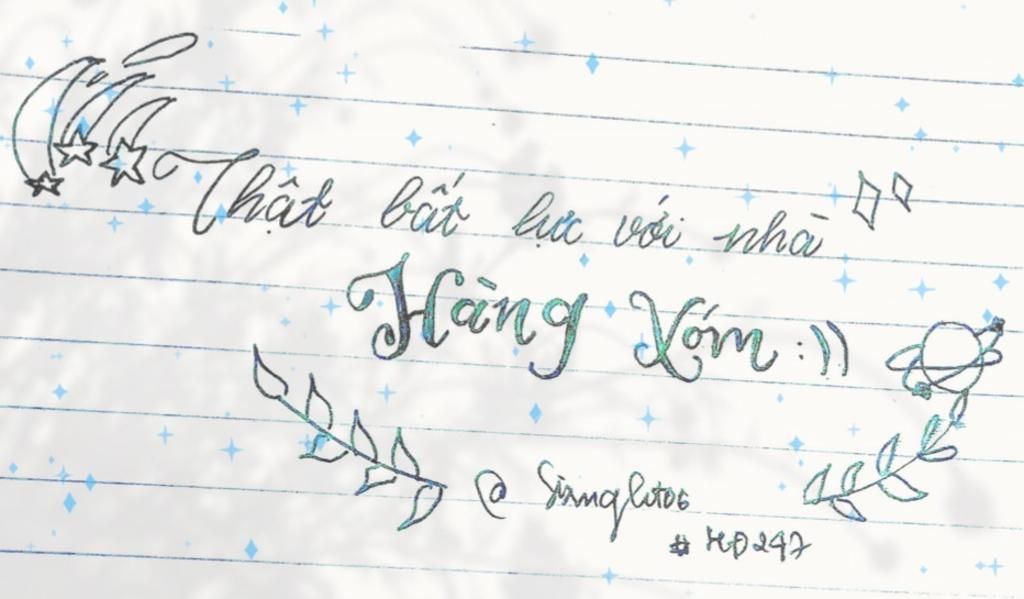 Thật bất lực với nhà
Hàng Xóm :))
@
# HD247